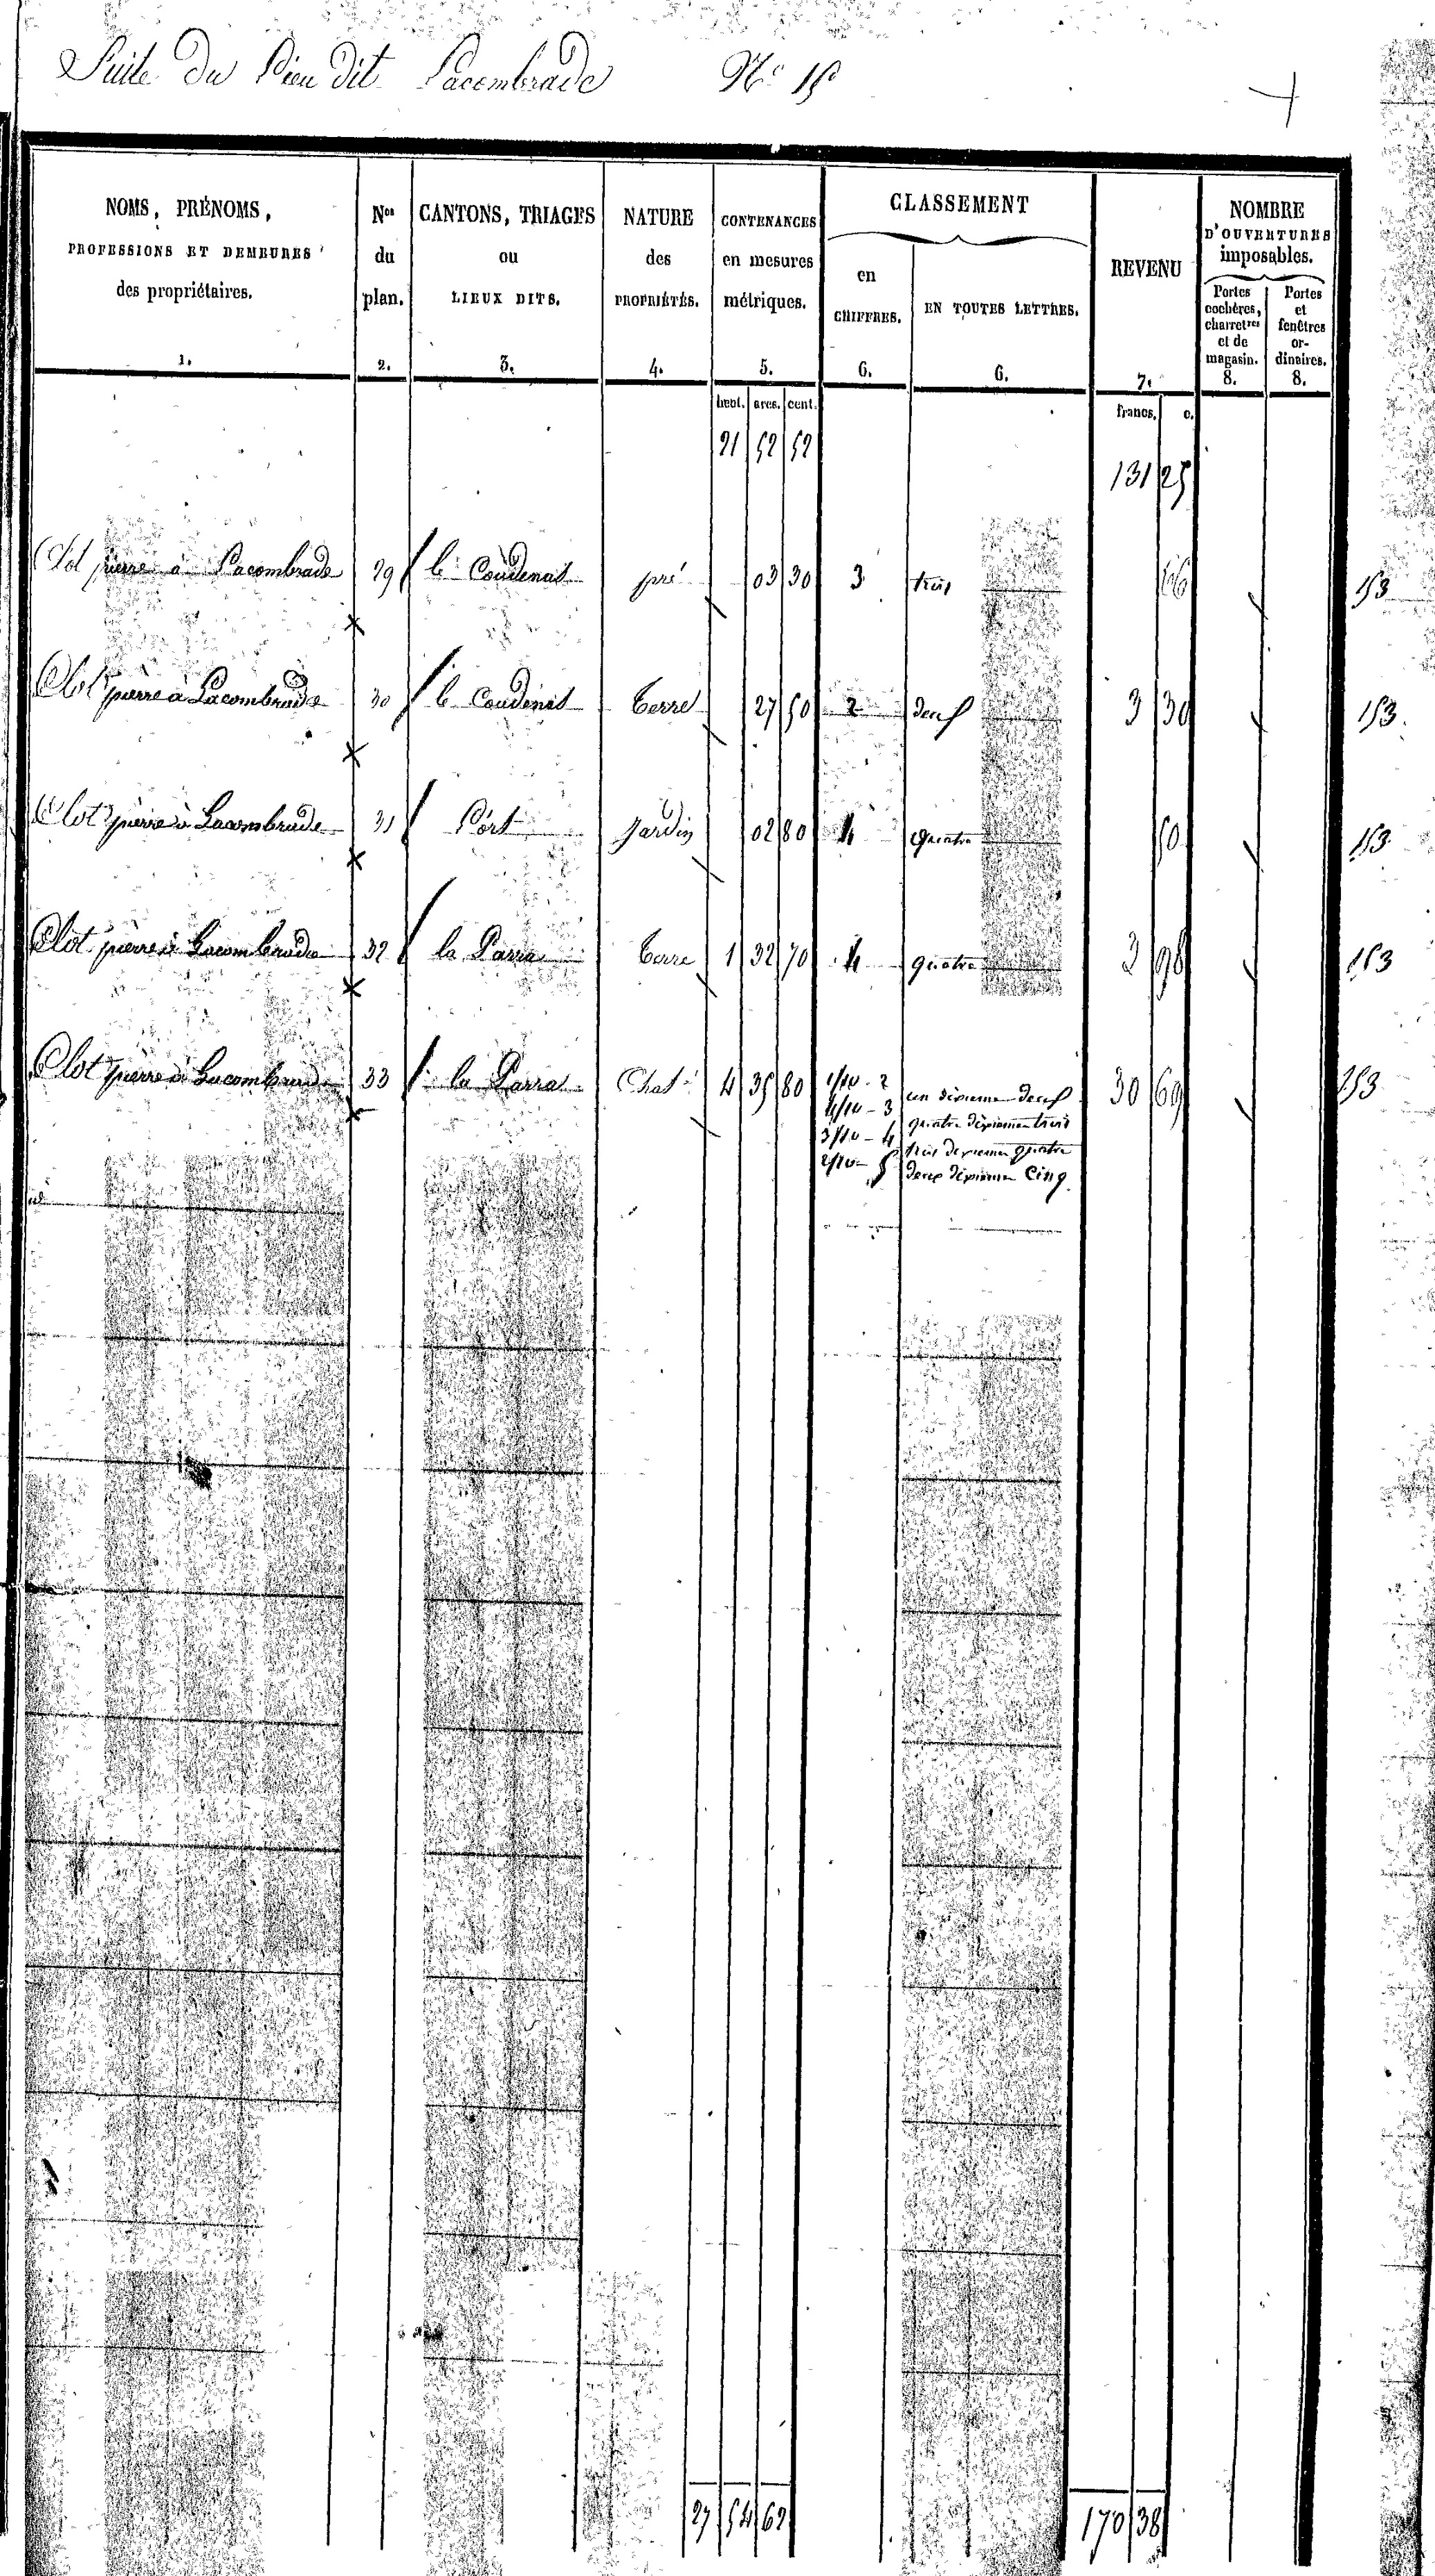 Suite Du Lieu dit Lacombrade N° 15
NOMS, PRÉNOMS,
PROFESSIONS ET DEMEURES
des propriétaires.
1.
Nos
du
plan.
2.
CANTONS, TRIAGES
ou
LIEUX DITS.
3.
NATURE
des
PROPRIÉTÉS.
4.
CONTENANCES
en mesures
métriques.
5.
CLASSEMENT
en
CHIFFRES.
6.
EN TOUTES LETTRES.
6.
REVENU
7.
NOMBRE
D'OUVERTURES
imposables.
Portes
cochères,
charretres
et de
magasin.
8.
Portes
et
fenêtres
or-
dinaires.
8.
hect. ares. cent.
francs. c.
21 52 52
131 25
Clot pierre à Lacombrade 29 le Coudenat pré 03 30 3 trois 66 153
Clot pierre à Lacombrade 30 le Coudenat terre 27 50 2 deux 3 30 153
Clot pierre à Lacombrade 31 Lort Jardin 02 80 4 quatre 50 153
Clot pierre à Lacombrade 32 la Parra terre 1 32 70 4 quatre 3 98 153
Clot pierre à Lacombrade 33 la Parra Chat. 4 35 80 1/10 - 2 un dixieme deux 30 69 153
4/10 - 3 quatre dixiemes trois
3/10 - 4 trois dixiemes quatre
2/10 - 5 deux dixiemes Cinq
27 54 62
170 38